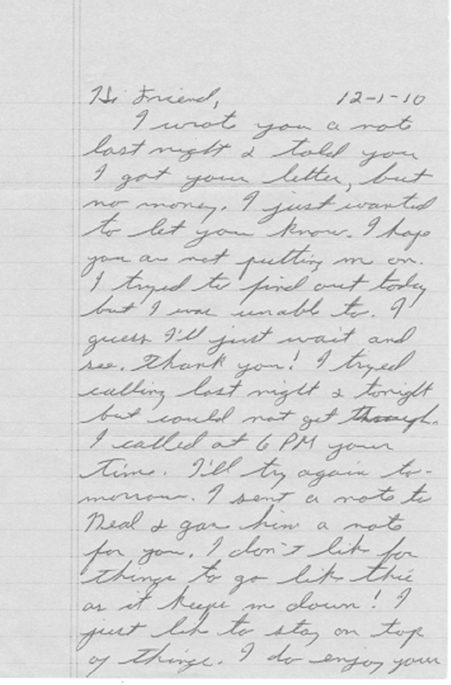 Hi Friend, 12-1-10
I wrote you a note
last night & told you
I got your letter, but
no money. I just wanted
to let you know. I hope
you are not putting me on.
I tryed to find out today
but I was unable to. I
guess I'll just wait and
see. Thank you! I tryed
calling last night & tonight
but could not get through.
I called at 6 PM your
time. I'll try again to-
morrow. I sent a note to
Neal & gave him a note
for you. I don't like for
things to go like this
as it keeps me down! I
just like to stay on top
of things. I do enjoy your